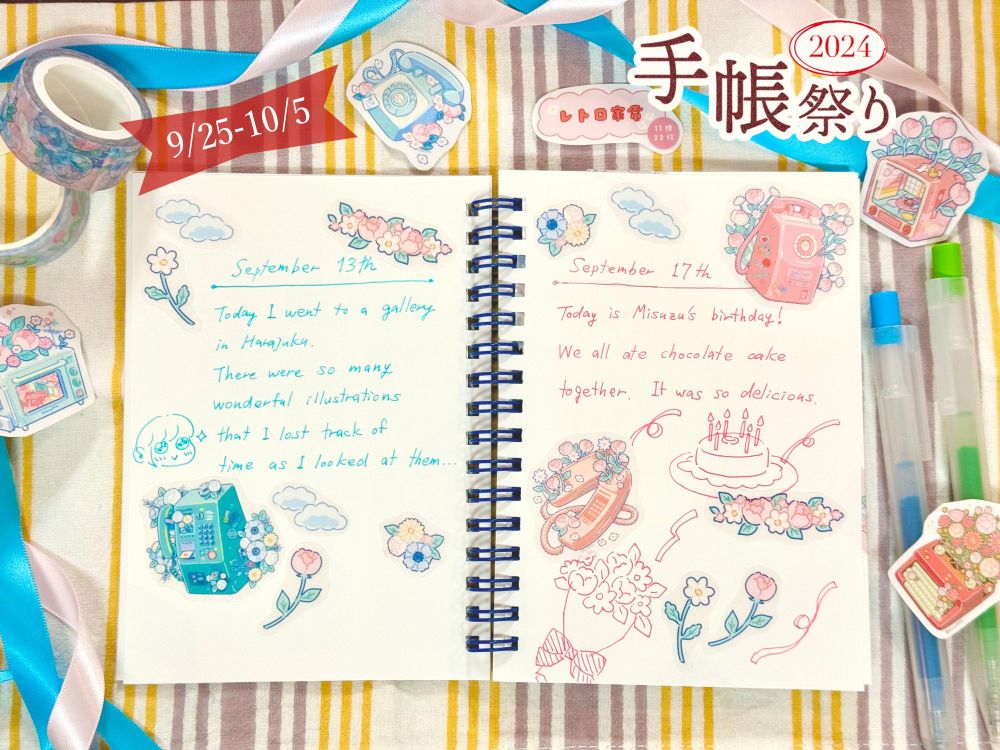 9/25-10/5
手帳祭り
2024
レトロ家電
11種
22枚
September 13th
Today I went to a gallery
in Harajuku.
There were so many
wonderful illustrations
that I lost track of
time as I looked at them...
September 17th
Today is Misuzu's birthday!
We all ate chocolate cake
together. It was so delicious.